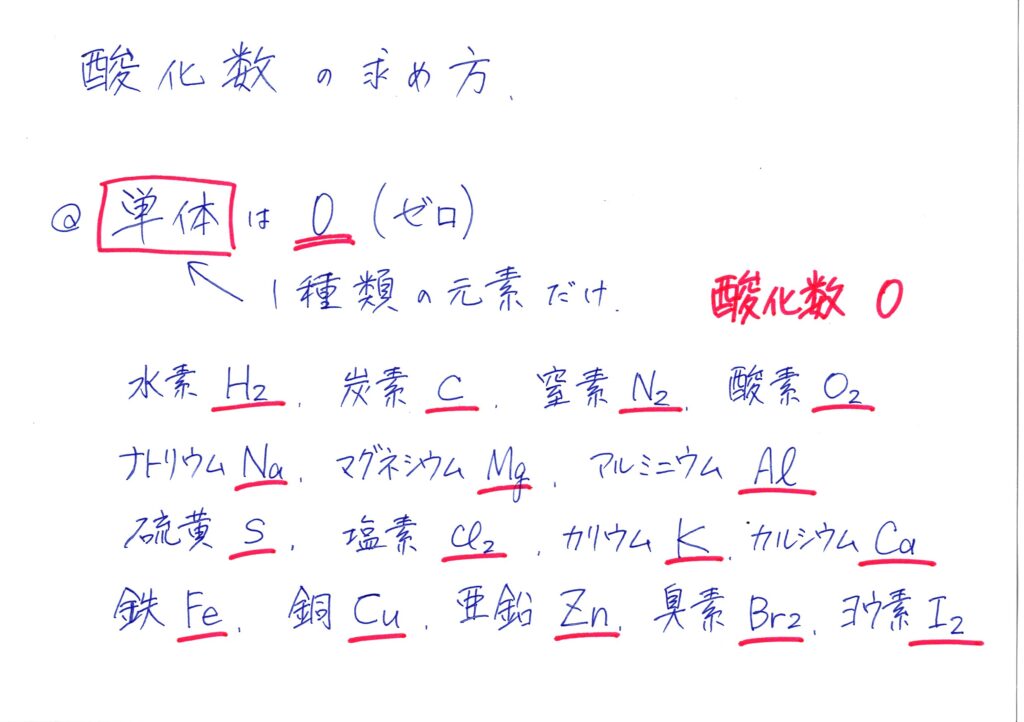 酸化数の求め方.
@ 単体は 0 (ゼロ)
1種類の元素だけ.
酸化数 0
水素 H2, 炭素 C, 窒素 N2, 酸素 O2
ナトリウム Na, マグネシウム Mg, アルミニウム Al
硫黄 S, 塩素 Cl2, カリウム K, カルシウム Ca
鉄 Fe, 銅 Cu, 亜鉛 Zn, 臭素 Br2, ヨウ素 I2